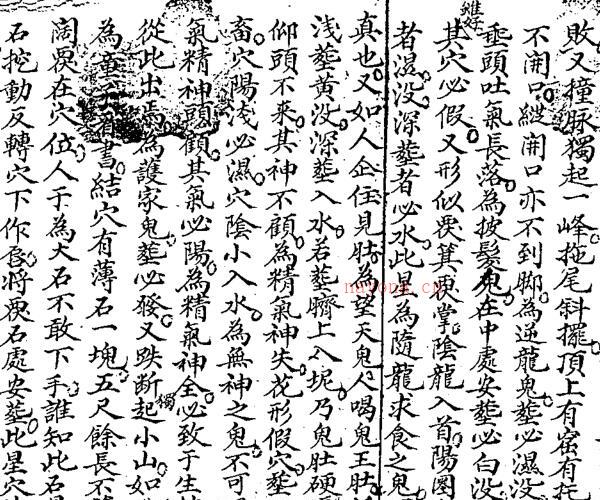 敗又撞脉獨起一峰拖尾斜擺頂上有窑有
不開口縱開口亦不到脚為逆龍鬼塟必濕没
垂頭吐氣長落為披鬃鬼在中處安塟必白没
雖好
其穴必假又形似掌陰龍入首陽
者濕没深塟者必水此是為隨龍求食之鬼
真也又如人企住見肚為望天鬼喝鬼王肚
浅塟黄没深塟入水若塟臍上入坭乃鬼肚硬
仰頭不来其神不顧為精氣神失花形假穴塟
畜穴陽浅必濕穴陰小入水為無神之鬼不可
氣精神頭顧其氣必陽為精氣神全必致于生
從此出焉為護家鬼塟必發又跌断起小山如
獨
為童子看書結穴有薄石一塊五尺餘長不
在穴位人于為大石不敢下手誰知此石
石挖動反轉穴下作唇将石處安塟此星穴